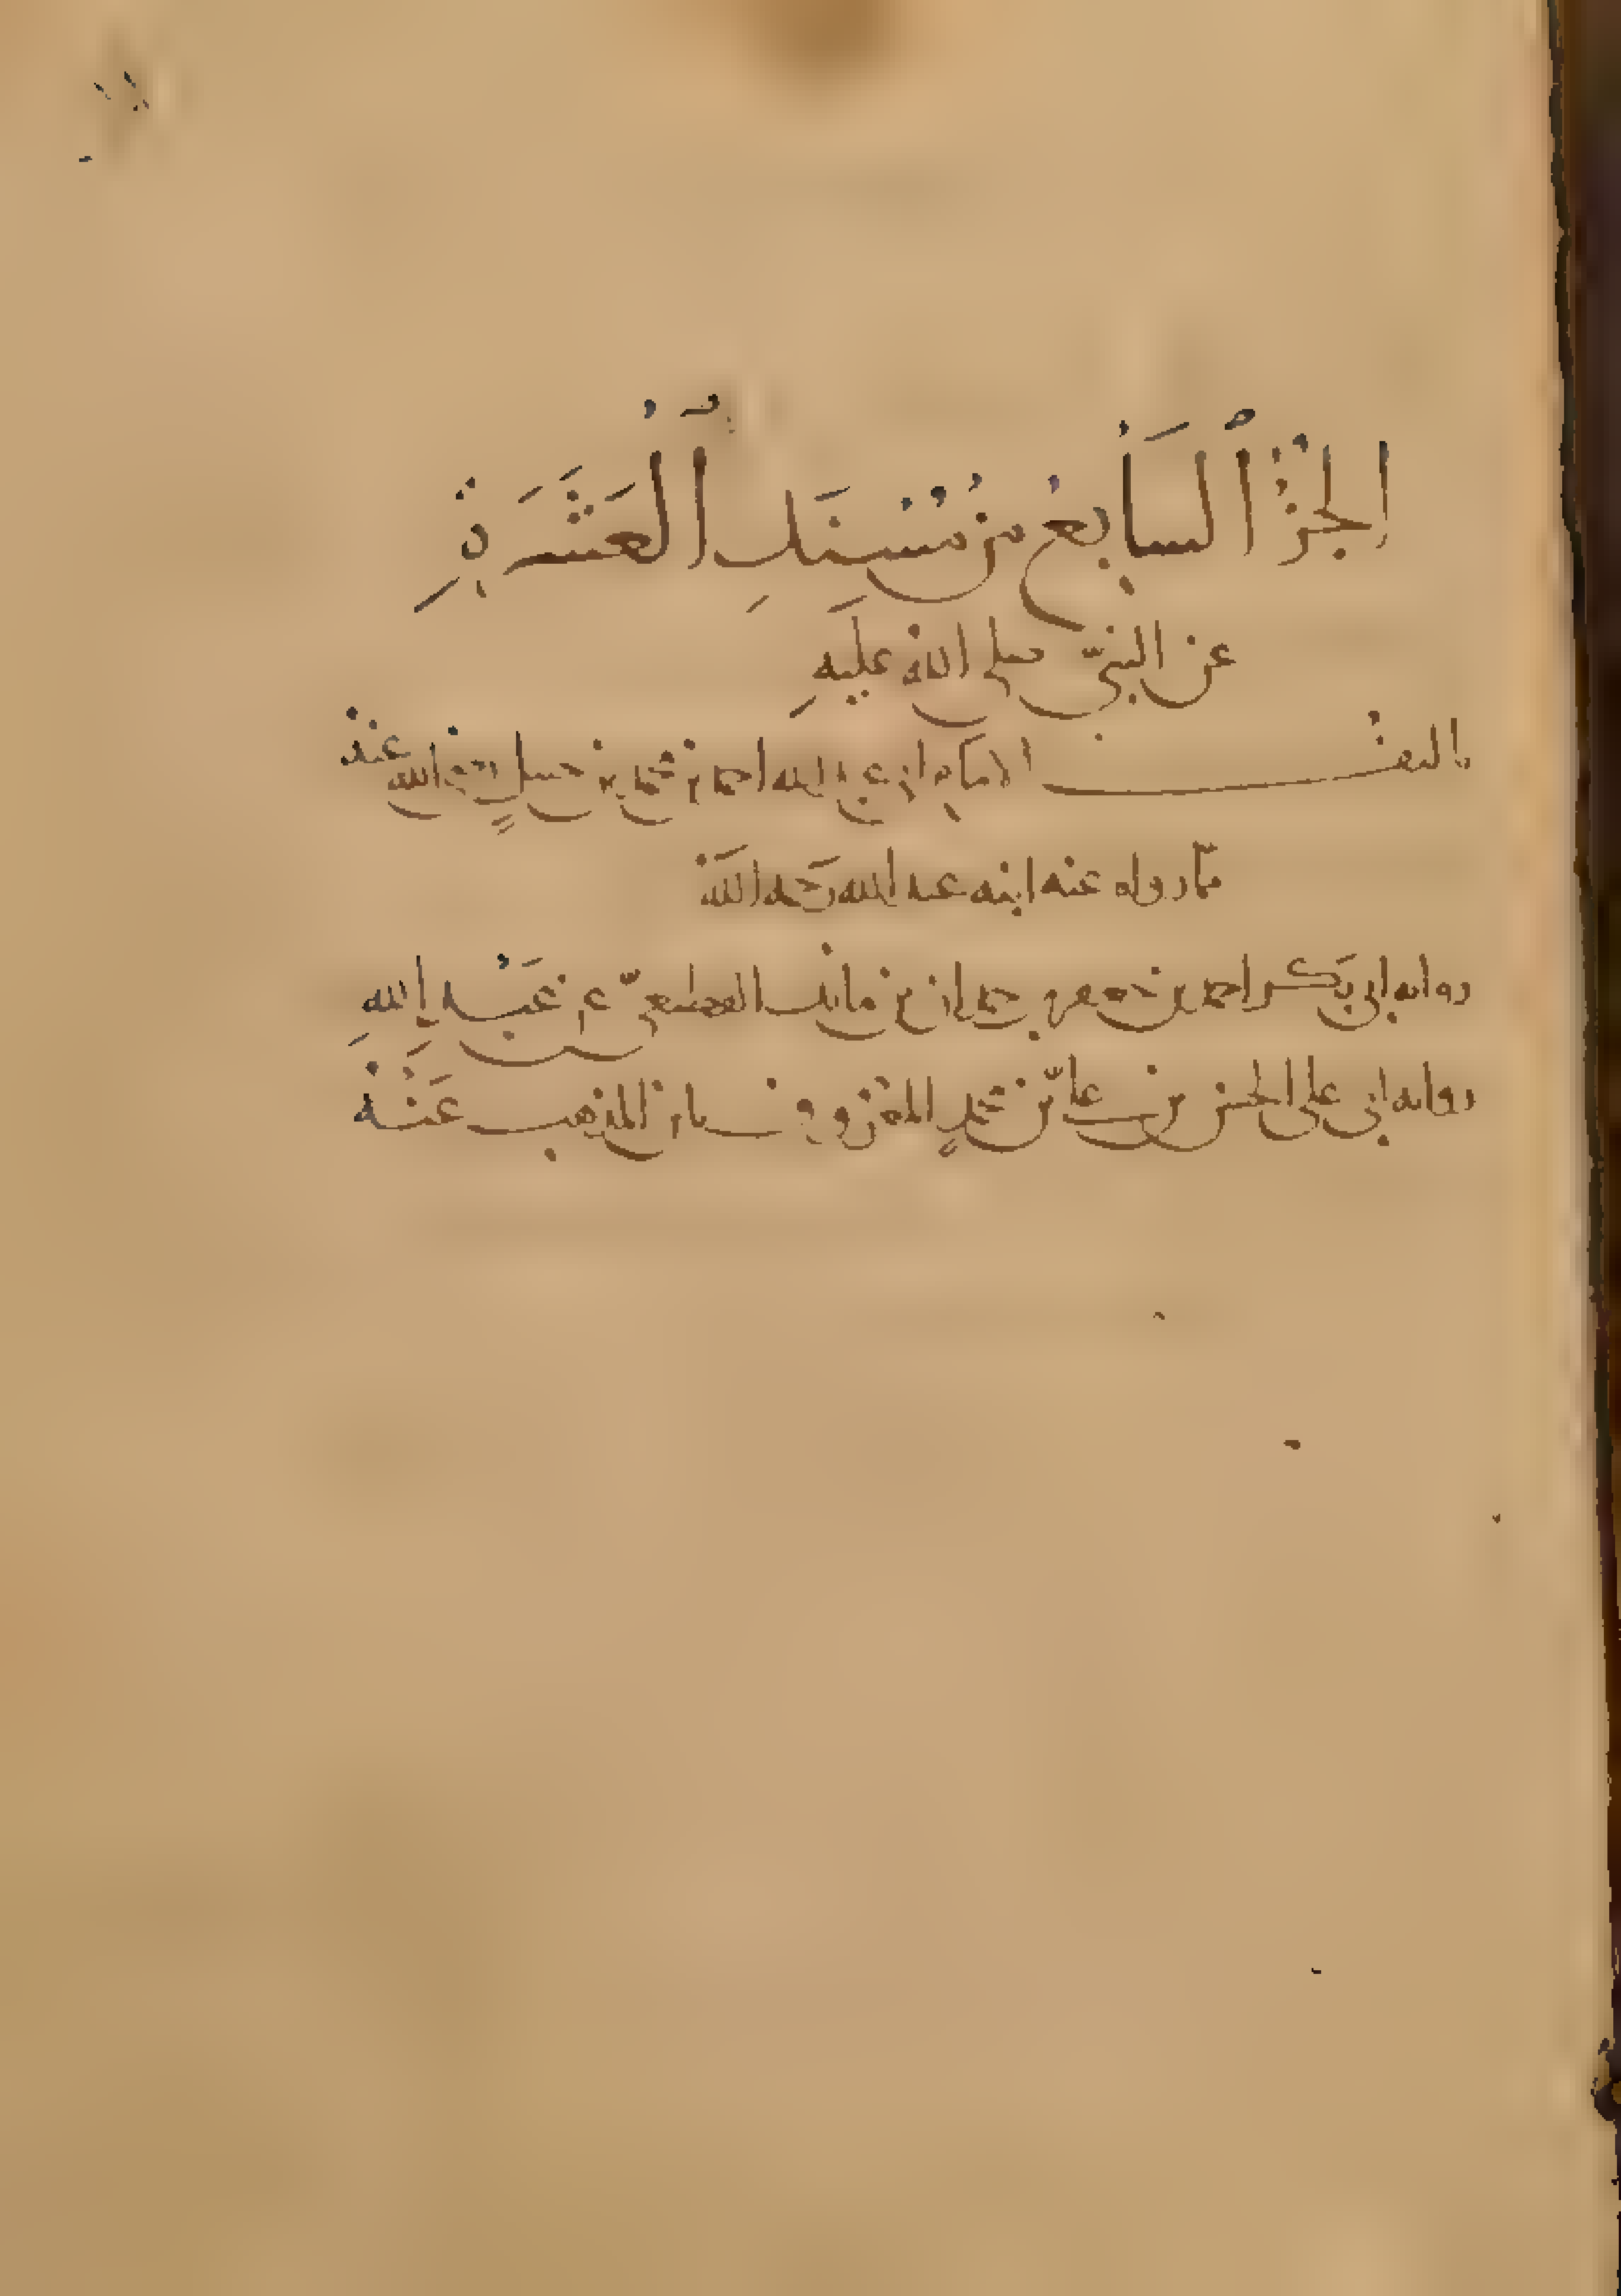 الجُزْءُ ٱلسَّابِعُ مِنْ مُسْنَدِ ٱلْعَشَرَةِ
عن النبيّ صلى الله عليهِ
تاليف الامام ابي عبد الله احمد بن محمد بن حنبلٍ رضي الله عنه
ممّا رواه عنه ابنه عبد الله رحمه الله
روايه ابي بكر احمد بن جعفر بن حمدان بن مالك القطيعيّ عن عَبْدِ اللهِ
روايه ابي علي الحسن بن عليّ بن محمدٍ المعروف بابن المذهب عَنْهُ